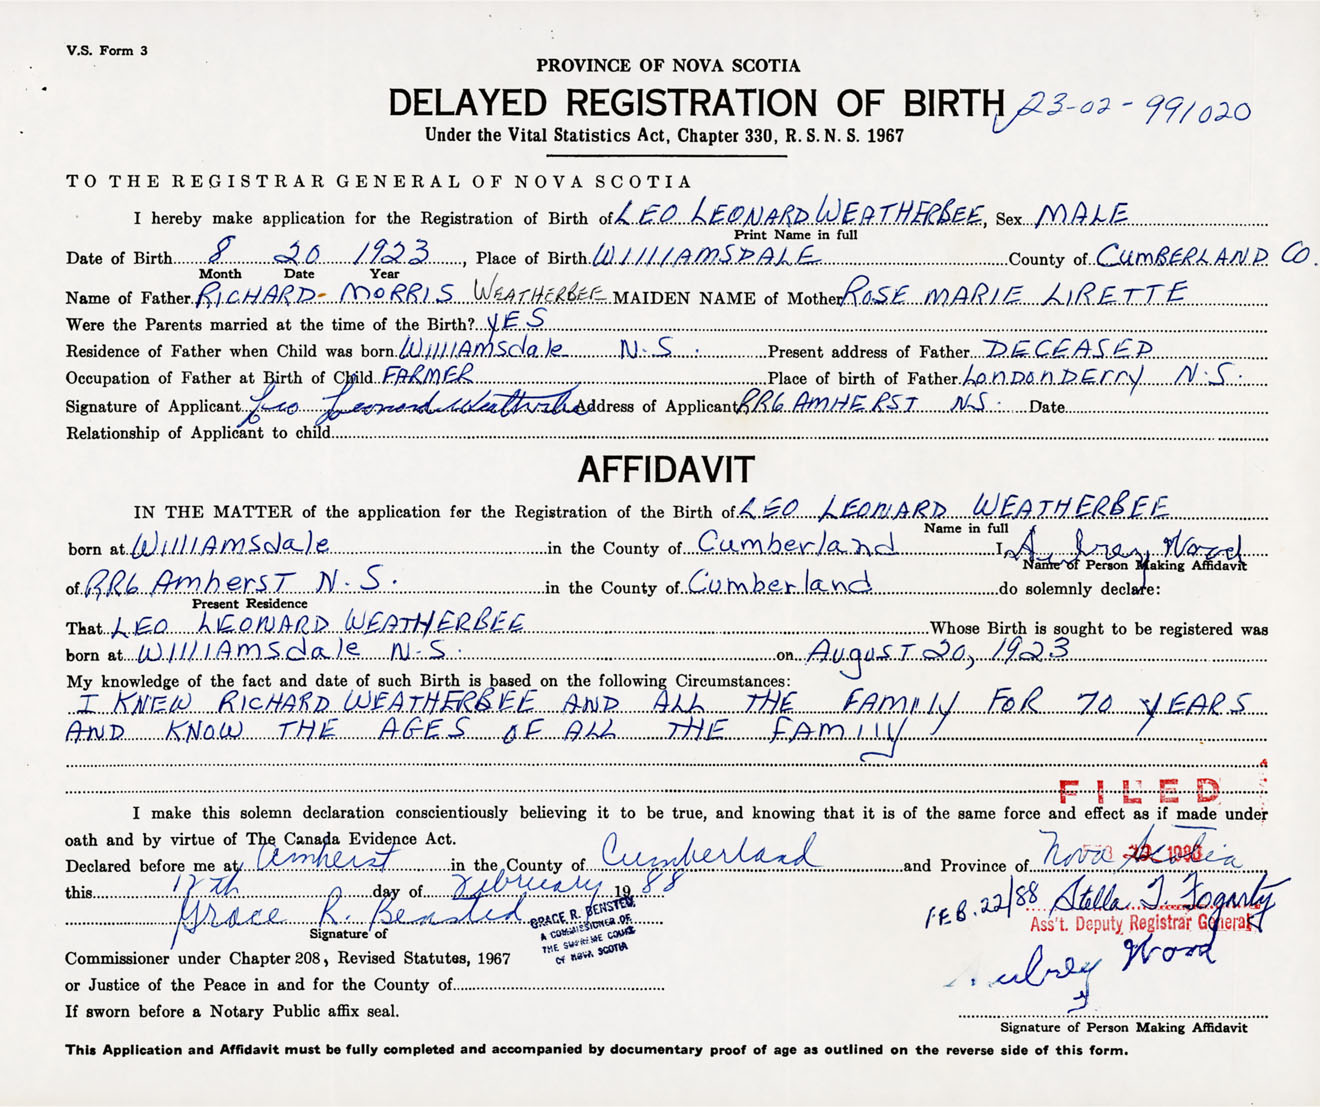 V.S. Form 3
PROVINCE OF NOVA SCOTIA
DELAYED REGISTRATION OF BIRTH 23-02-991020
Under the Vital Statistics Act, Chapter 330, R.S.N.S. 1967
TO THE REGISTRAR GENERAL OF NOVA SCOTIA
I hereby make application for the Registration of Birth of LEO LEONARD WEATHERBEE, Sex MALE
Print Name in full
Date of Birth 8 20 1923, Place of Birth WIllIAMSDALE County of CUMBERLAND CO.
Month Date Year
Name of Father RICHARD- MORRIS WEATHERBEE MAIDEN NAME of Mother ROSE MARIE LIRETTE
Were the Parents married at the time of the Birth? YES
Residence of Father when Child was born WillIAMsdale N.S. Present address of Father DECEASED
Occupation of Father at Birth of Child FARMER Place of birth of Father LONDONDERRY N.S.
Signature of Applicant Leo Leonard Weatherbee Address of Applicant RR6 AMHERST NS. Date
Relationship of Applicant to child
AFFIDAVIT
IN THE MATTER of the application for the Registration of the Birth of LEO LEONARD WEATHERBEE
Name in full
born at WillIAMsdale in the County of Cumberland I, Aubrey Wood
Name of Person Making Affidavit
of RR6 Amherst N.S. in the County of Cumberland do solemnly declare:
Present Residence
That LEO LEONARD WEATHERBEE Whose Birth is sought to be registered was
born at WIllIAMSdale N.S. on August 20, 1923
My knowledge of the fact and date of such Birth is based on the following Circumstances:
I KNEW RICHARD WEATHERBEE AND ALL THE FAMIly FOR 70 YEARS
AND KNOW THE AGES OF ALL THE FAMIlly
FILED
I make this solemn declaration conscientiously believing it to be true, and knowing that it is of the same force and effect as if made under
oath and by virtue of The Canada Evidence Act.
Declared before me at Amherst in the County of Cumberland and Province of Nova Scotia
this 12th day of February 1988
FEB. 22/88 Stella T. Fogarty
Grace R. Bensted
GRACE R. BENSTED
A COMMISSIONER OF
THE SUPREME COURT
OF NOVA SCOTIA
Ass't. Deputy Registrar General
Signature of
Aubrey Wood
Commissioner under Chapter 208, Revised Statutes, 1967
or Justice of the Peace in and for the County of
If sworn before a Notary Public affix seal.
Signature of Person Making Affidavit
This Application and Affidavit must be fully completed and accompanied by documentary proof of age as outlined on the reverse side of this form.